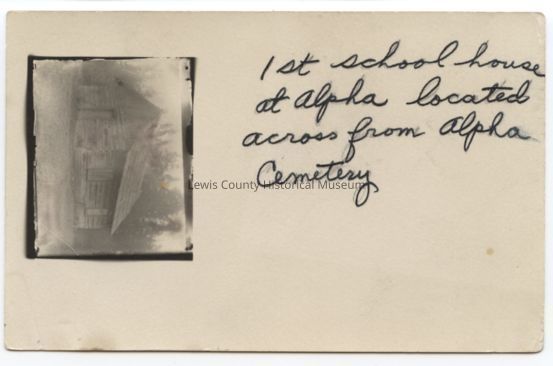 1st school house
at Alpha located
across from Alpha
Cemetery
Lewis County Historical Museum